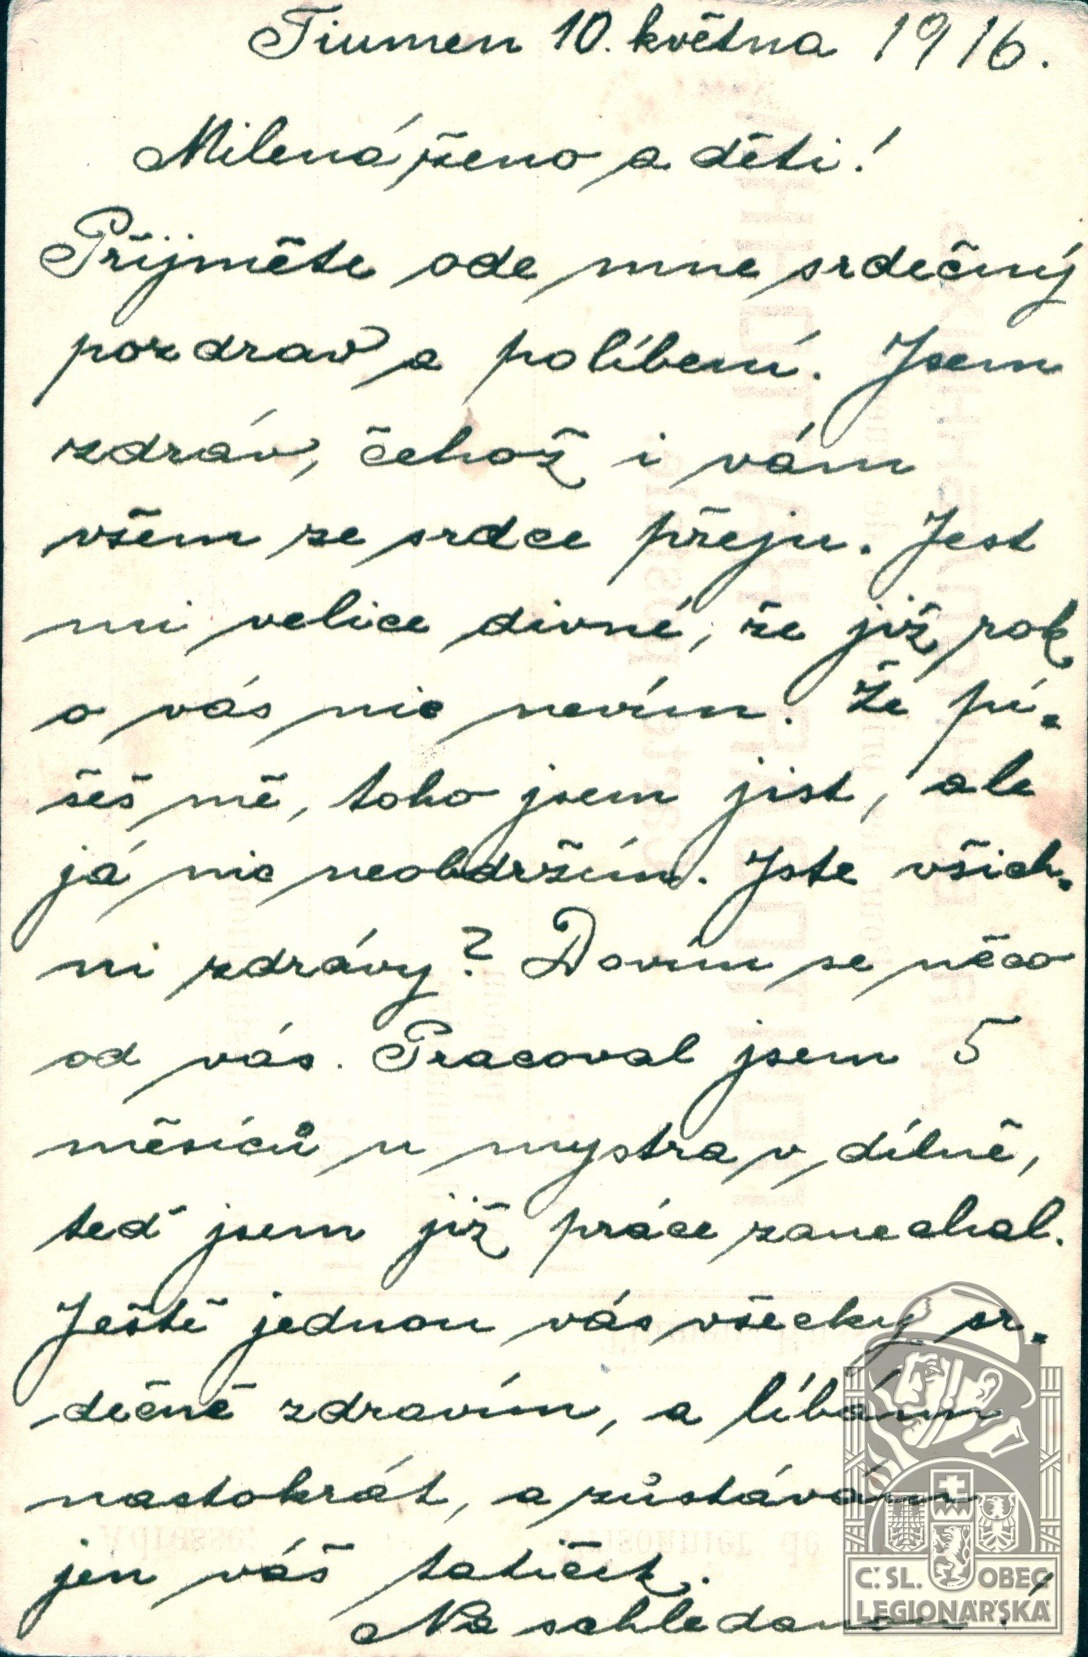 Tiumen 10. května 1916.
Milená ženo a děti!
Přijměte ode mne srdečný
pozdrav a políbení. Jsem
zdráv, čehož i vám
všem ze srdce přeju. Jest
mi velice divné, že již rok
o vás nic nevím. Že pí-
šeš mě, toho jsem jist, ale
já nic neobdržím. Jste všich-
ni zdrávy? Dovím se něco
od vás. Pracoval jsem 5
měsíců u mystra v dílně,
teď jsem již práce zanechal.
Ještě jednou vás všecky sr-
dečně zdravím, a líbám
nastokrát, a zůstávám
jen váš tatíček.
Na schledanou!
Č. SL. OBEC
LEGIONÁŘSKÁ